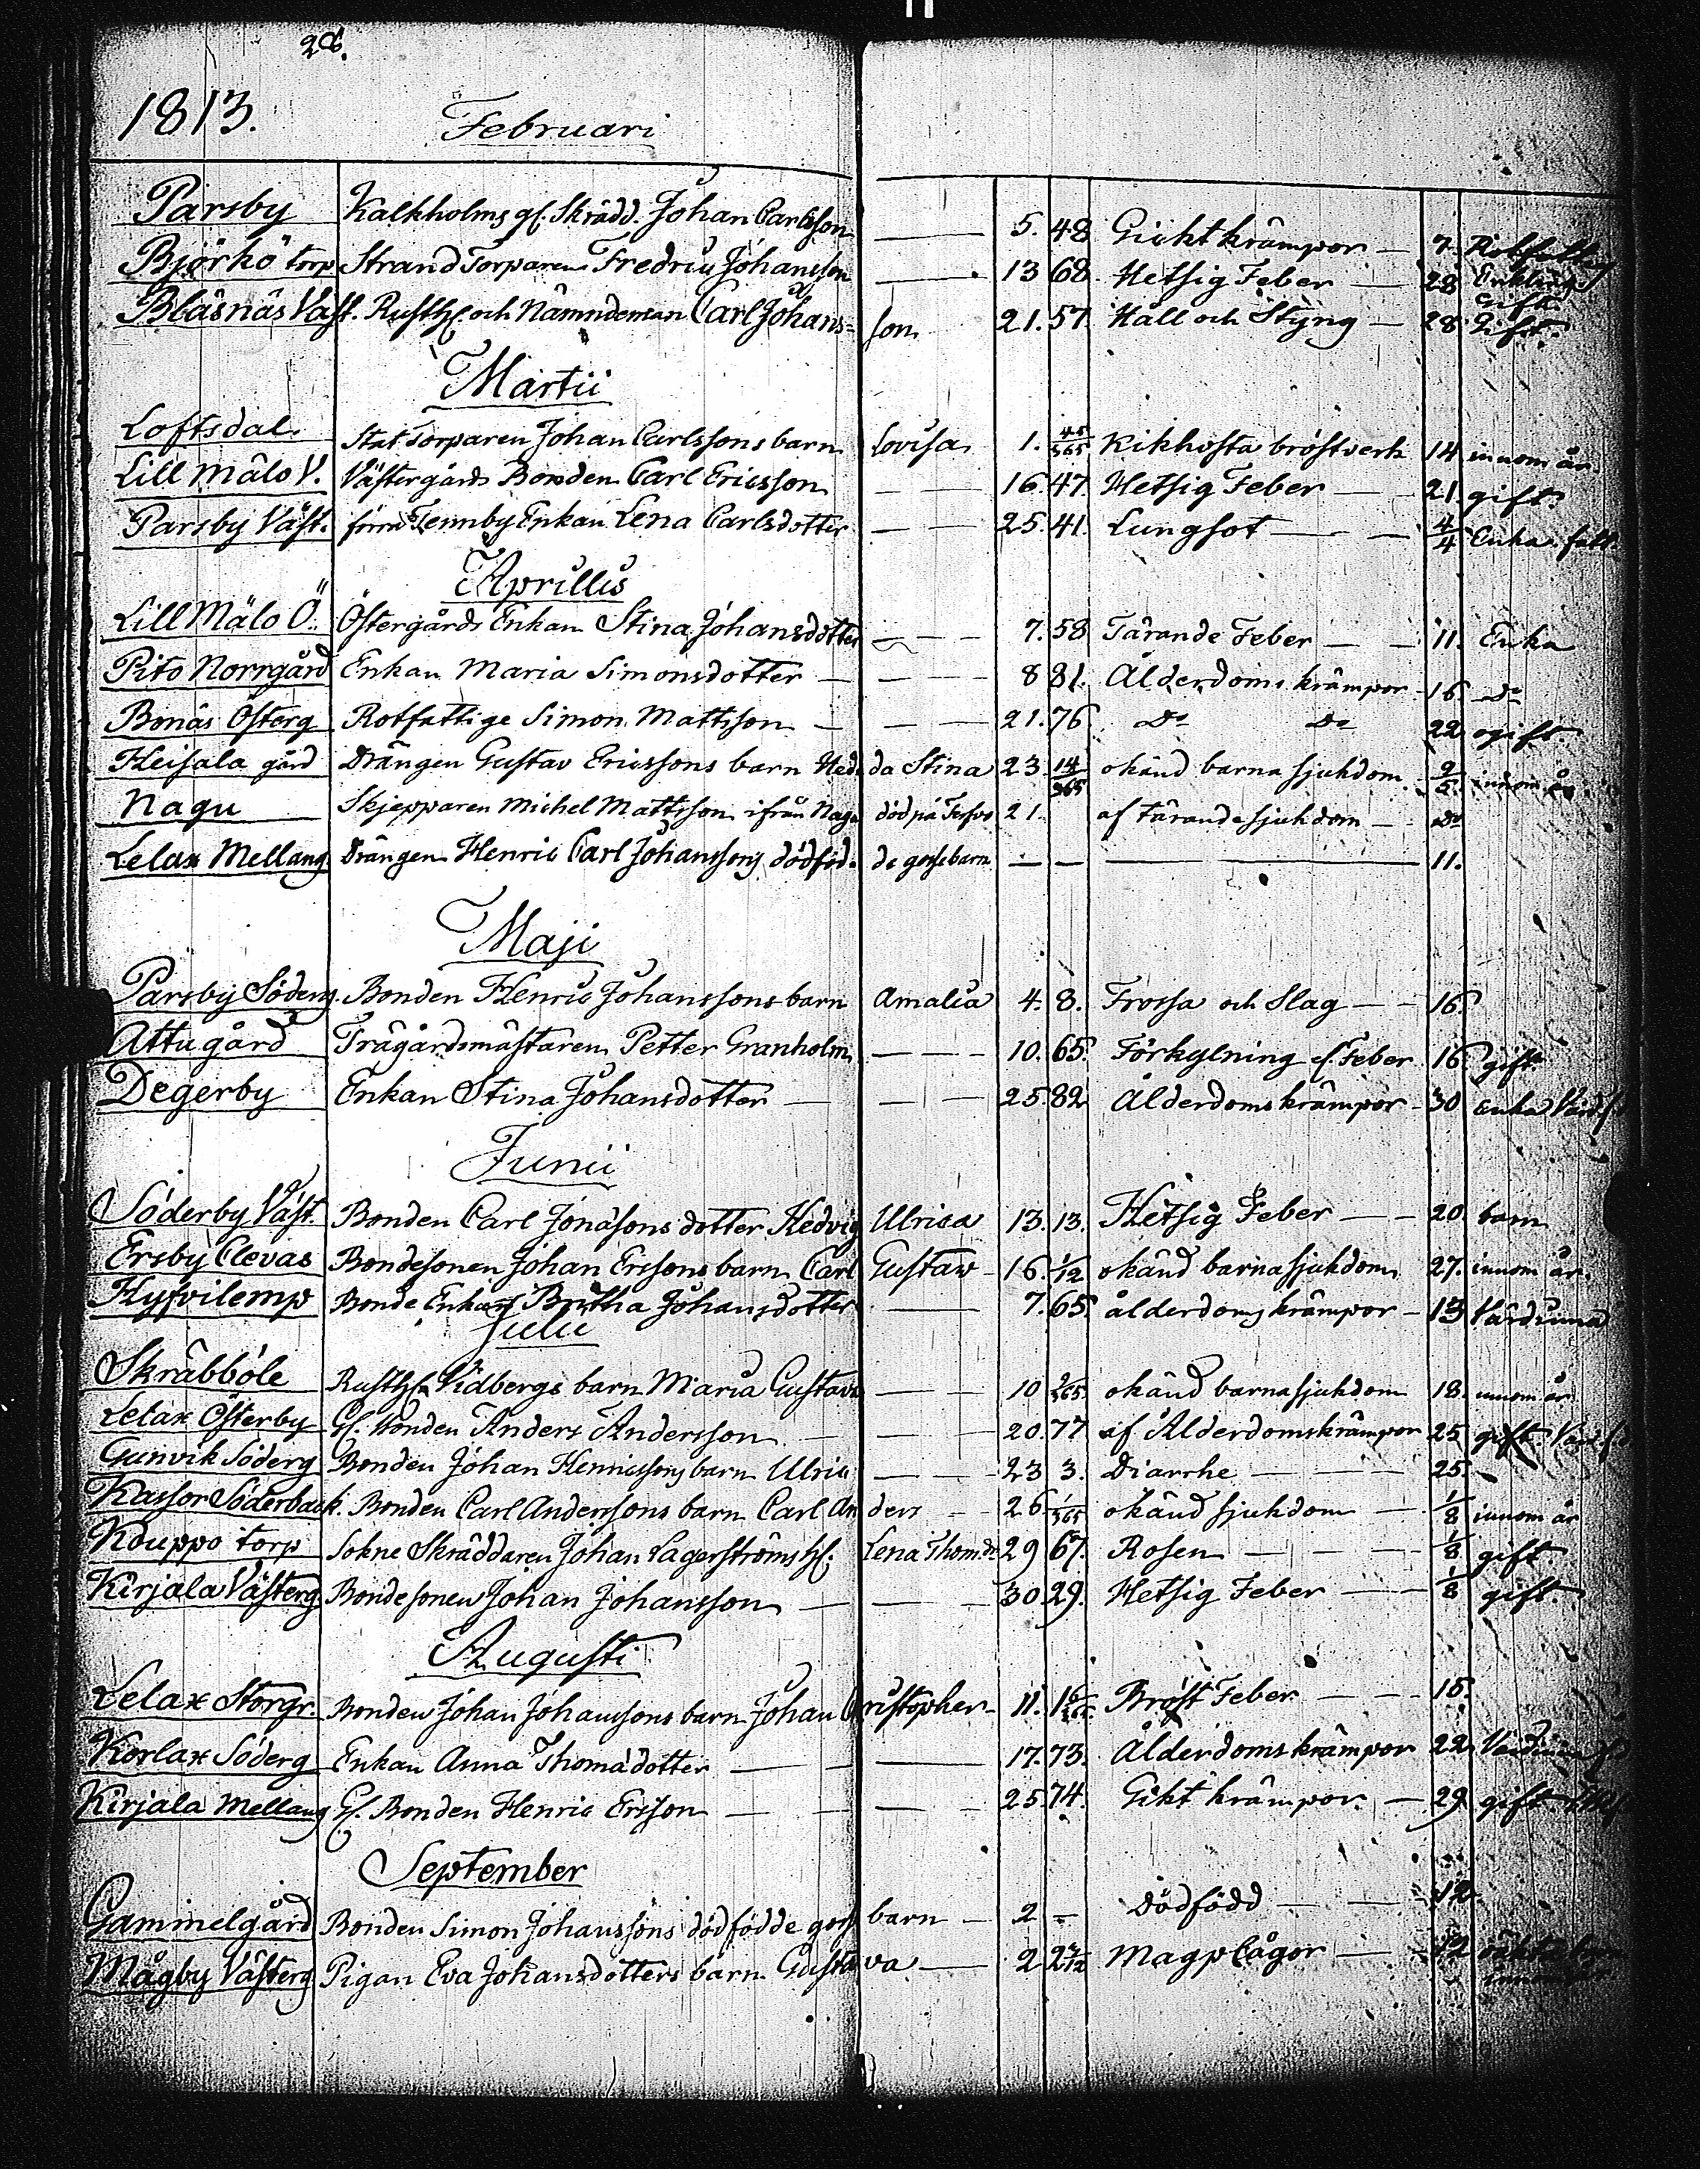 26.
1813. Februari
Parsby Kalkholms gl. Skrädd. Johan Carlsson — 5. 48 Gickt krämpor — 7.
Björkö torp Strand Torparen Fredric Johansson — 13 68 Hetsig Feber — 28 Enkling
Gift
Bläsnäs Väst. Rusth. och Nämndeman Carl Johans= son 21. 57. Håll och Styng — 28. Gift.
Martii
Loftsdal. Stat Torparen Johan Carlssons barn Lovisa 1. 45/365 Kikhosta bröstverk 14 innom år.
Lill Mälo V. Västergårds Bonden Carl Ericsson — — 16. 47. Hetsig Feber — 21. gift.
Parsby Väst. förra Tennby Enkan Lena Carlsdotter — — 25. 41. Lungsot — — 4/4 Enka fatt.
Aprillis
Lill Mälo Ö. Östergårds Enkan Stina Johansdotter — — — 7. 58 Tärande Feber — — 11. Enka
Pito Norrgård Enkan Maria Simonsdotter — — — — 8 81. Ålderdoms krämpor — 16 Do
Bonäs Österg Rotfattige Simon Mattsson — — — 21. 76 Do Do 22 ogift.
Heisala gård Drängen Gustav Ericssons barn Hed= da Stina 23 14/365 okänd barna sjukdom 2/5. innom år
Nagu Skjepparen Michel Mattsson ifrån Nagu död på 21. af tärande sjukdom — Do
Lelax Mellang. Drängen Henric Carl Johanssons dödföd= de gosse barn — — — 11.
Maji
Parsby Söderg. Bonden Henric Johanssons barn Amalia 4. 8. Frossa och Slag — — 16.
Attu gård Trägårdsmästaren Petter Granholm — — — 10. 65. Förkylning o. Feber 16 gift.
Degerby Enkan Stina Johansdotter — — — — 25. 82 Ålderdoms krämpor — 30 enka
Junii
Söderby Väst. Bonden Carl Jonasons dotter Hedvig Ulrica 13. 13. Hetsig Feber — — 20. barn
Ersby Clevas Bondesonen Johan Ersons barn Carl Gustaw — 16. 1/12 okänd barna sjukdom 27. innom år.
Hyfvilemp Bonde Enkan Britha Johansdotter — 7. 65. ålderdoms krämpor — 13
Julii
Skräbböle Rusth. Vidbergs barn Maria Gustava — — 10 okänd barna sjukdom 18. innom år
Lelax Österby Gl. Bonden Anders Andersson — — — 20. 77 af Ålderdomskrämpor 25 gift.
Gunvik Söderg Bonden Johan Henricssons barn Ulric — — — 23 3. Diarrhe — — — 25.
Kassor Söderback. Bonden Carl Anderssons barn Carl An ders — 26 1/365 okänd sjukdom — 1/8 innom år
Kouppo torp Sokne Skräddaren Johan Lagerströms h. Lena Thom.dr 29 67. Rosen — — — 1/8 gift.
Kirjala Västerg Bondesonen Johan Johansson — — — 30. 29. Hetsig Feber — — 1/8 gift.
Augusti
Lelax Storgr. Bonden Johan Johanssons barn Johan Cristopher — 11. Bröst Feber — — 15.
Korlax Söderg Enkan Anna Thomadotter — — — 17. 73. Ålderdoms krämpor 22.
Kirjala Mellang Gl. Bonden Henric Ersson — — — 25 74. Gikt krämpor — 29 gift.
September
Gammelgård Bonden Simon Johanssons dödfödde goss barn — 2 — Dödfödd — — 12
Mågby Västerg Pigan Eva Johansdotters barn Gusta va — 2 Magplågor — — 12 oäkta barn
innom år